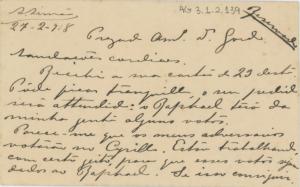 27-2-918
AG 3.1.2.139
Reservada
Prezad. Amº. Dr.
Saudações cordiaes.
Recebi a sua cartão de 23 deste.
Póde ficar tranquillo, o seu pedido
será attendido: o Raphael terá da
minha gente alguns votos.
Parece-me que os meus adversarios
votarão no Cyrillo. Estou trabalhando
com certo geito para que esses votos
dados ao Raphael. Se isso conseguir